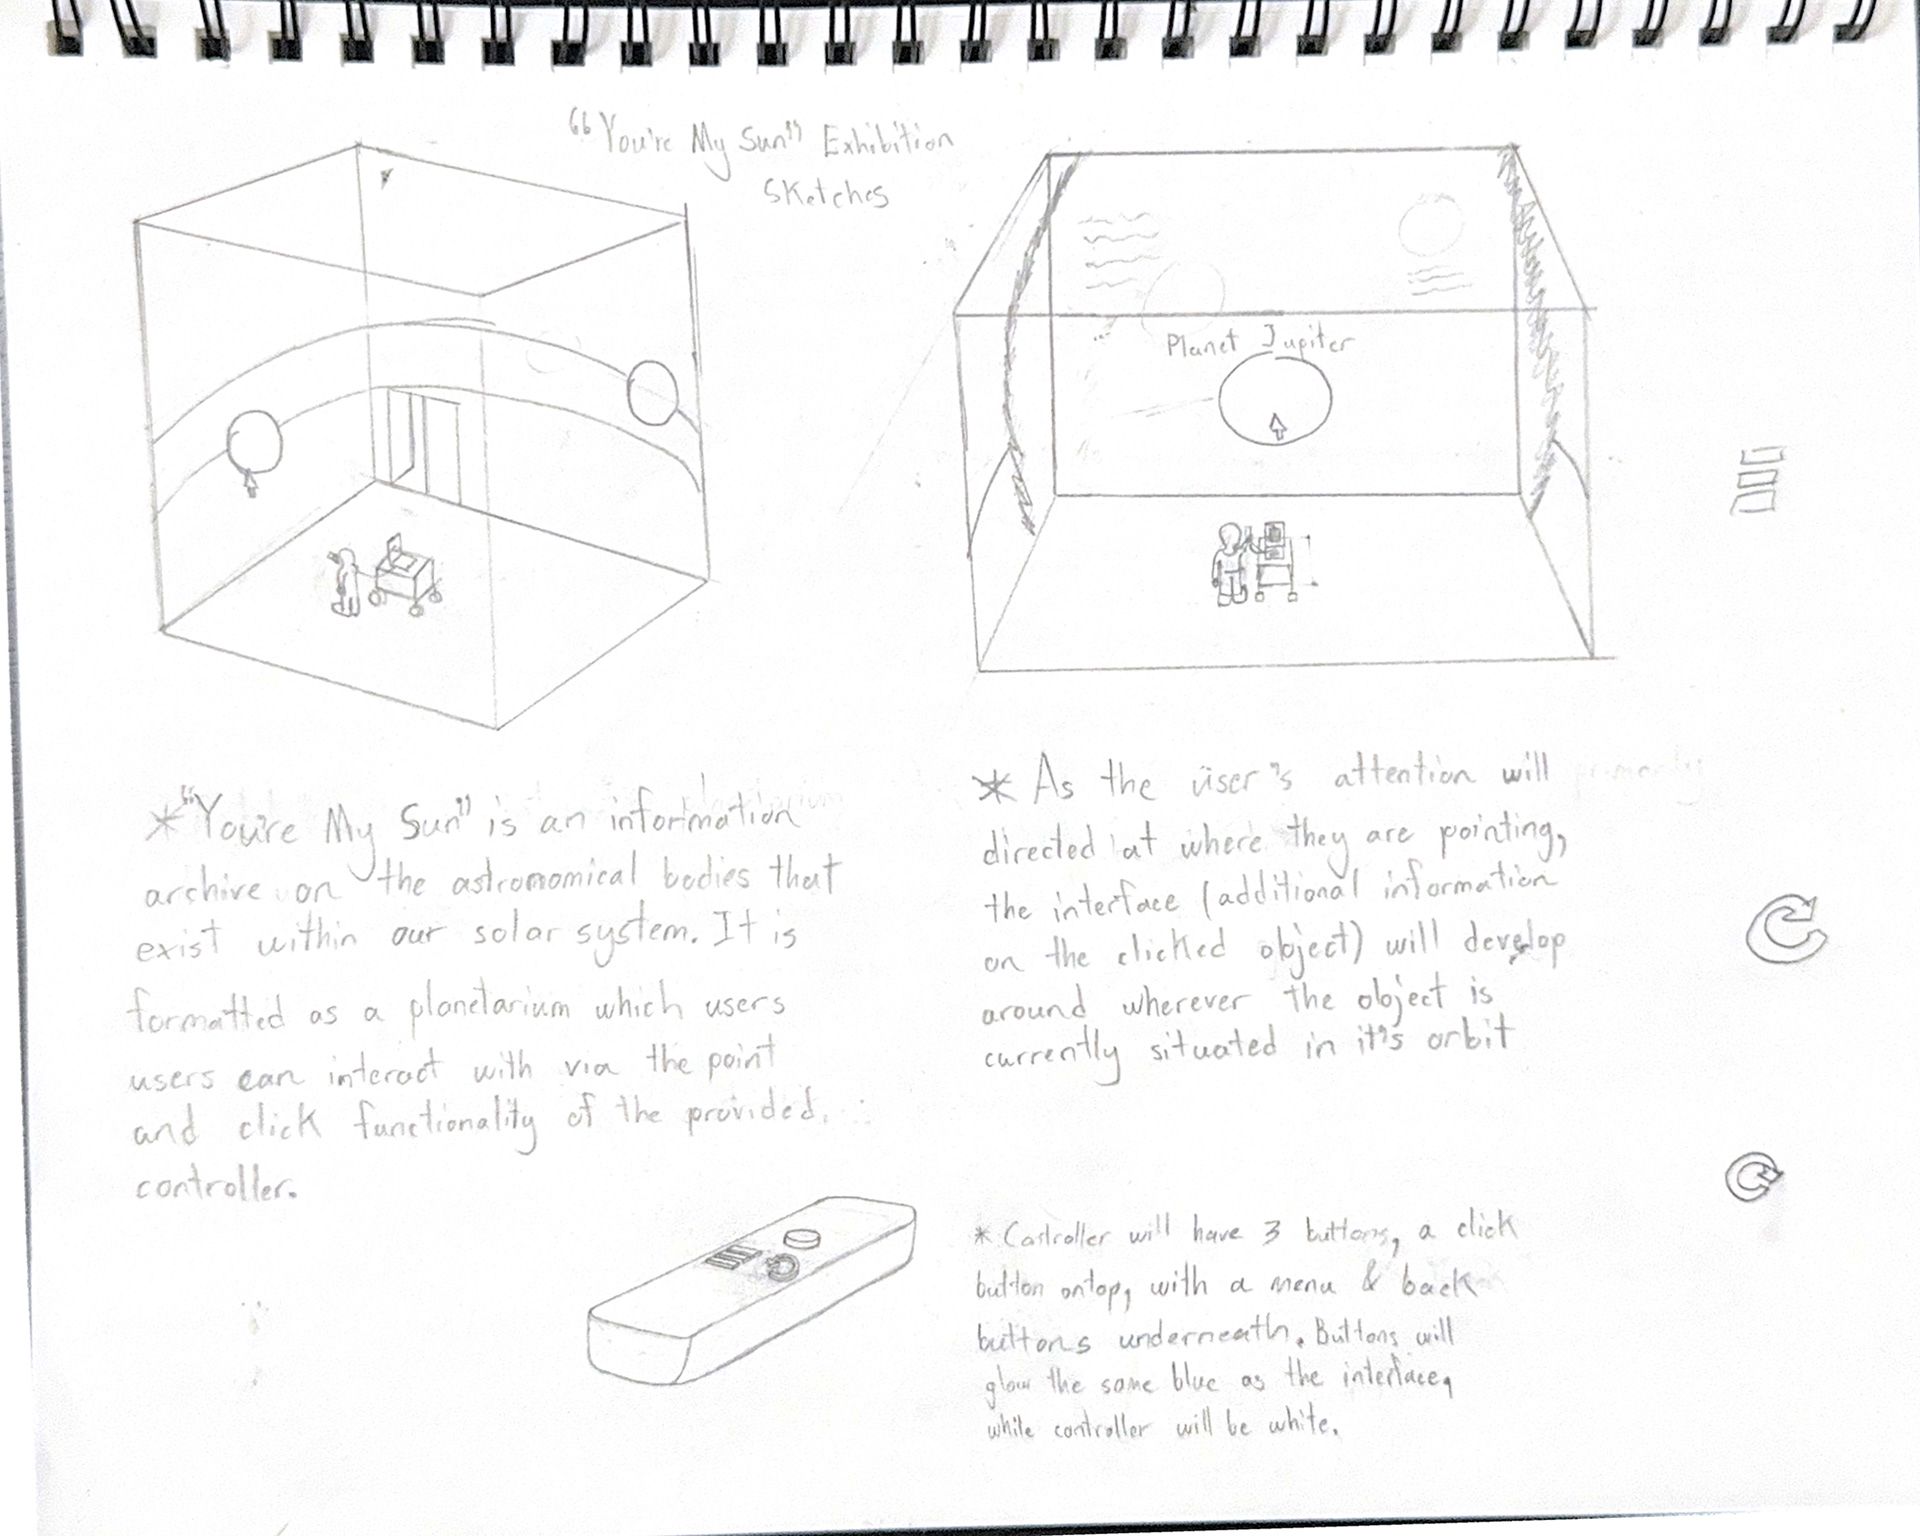 "You're My Sun" Exhibition
Sketches
Planet Jupiter
*"You're My Sun" is an information
archive on the astronomical bodies that
exist within our solar system. It is
formatted as a planetarium which users
users can interact with via the point
and click functionality of the provided.
controller.
* As the user's attention will primarily
directed at where they are pointing,
the interface (additional information
on the clicked object) will develop
around wherever the object is
currently situated in it's orbit
* Controller will have 3 buttons, a click
button ontop, with a menu & back
buttons underneath. Buttons will
glow the same blue as the interface,
while controller will be white.